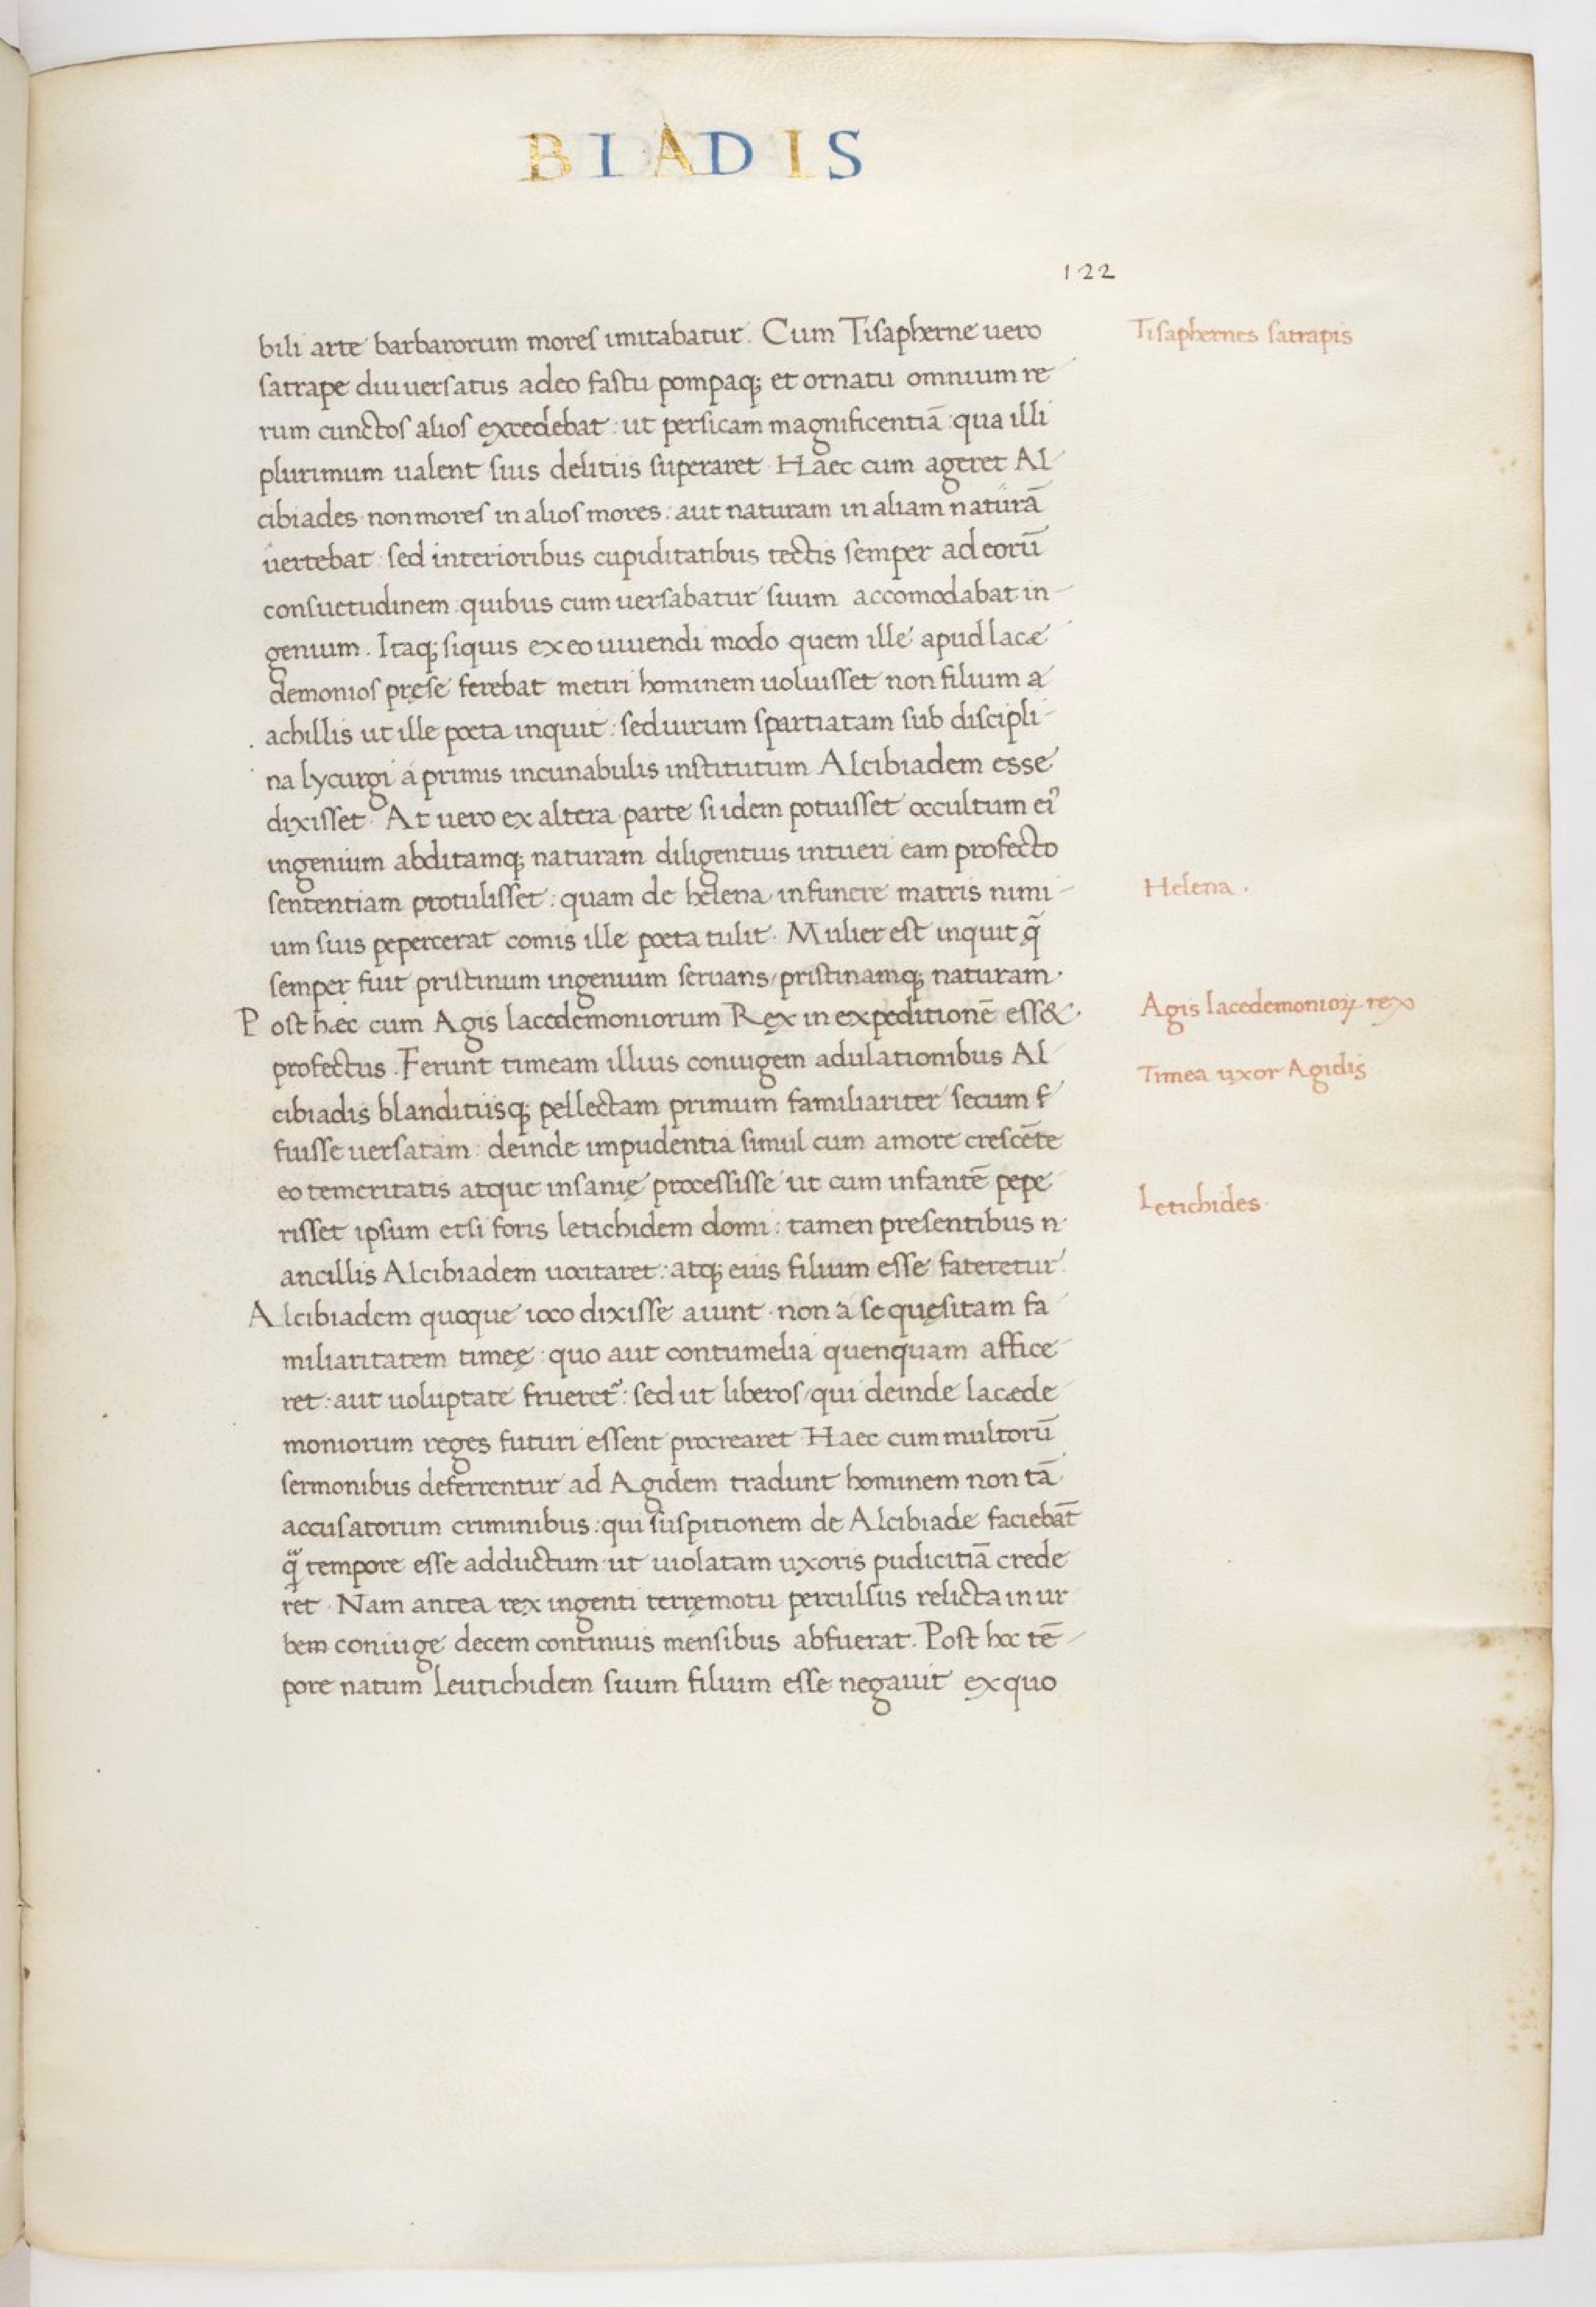 BIADIS
122
bili arte barbarorum mores imitabatur. Cum Tisapherne uero
satrape diu uersatus adeo fastu pompaq; et ornatu omnium re
rum cunctos alios excedebat: ut persicam magnificentiā: qua illi
plurimum ualent suis delitiis superaret. Haec cum ageret Al
cibiades non mores in alios mores: aut naturam in aliam naturā
uertebat: sed interioribus cupiditatibus tectis semper ad eorū
consuetudinem: quibus cum uersabatur suum accomodabat in-
genium. Itaq; siquis ex eo uiuendi modo quem ille apud lacæ
demonios pręse ferebat metiri hominem uoluisset non filium a
achillis ut ille poeta inquit: sed uirum spartiatam sub discipli-
na lycurgi a primis incunabulis institutum Alcibiadem esse
dixisset. At uero ex altera parte si idem potuisset occultum eiꝰ
ingenium abditamq; naturam diligentius intueri eam profecto
sententiam protulisset: quam de helena in funere matris nimi-
um suis pepercerat comis ille poeta tulit. Mulier est inquit q̄
semper fuit pristinum ingenium seruans/pristinamq; naturam.
Post hæc cum Agis lacedemoniorum Rex in expeditionē ess&.
profectus. Ferunt timeam illius coniugem adulationibus Al
cibiadis blanditiisq; pellectam primum familiariter secum f
fuisse uersatam: deinde impudentia simul cum amore crescēte
eo temeritatis atque insanię processisse ut cum infantē pepe
risset ipsum etsi foris letichidem domi: tamen presentibus n
ancillis Alcibiadem uocitaret: atq; eius filium esse fateretur.
Alcibiadem quoque ioco dixisse aiunt. non a se quęsitam fa
miliaritatem timeę: quo aut contumelia quenquam affice
ret: aut uoluptate frueret᷑: sed ut liberos/qui deinde lacæde
moniorum reges futuri essent procrearet. Haec cum multorū
sermonibus deferrentur ad Agidem tradunt hominem non tā
accusatorum criminibus: qui suspitionem de Alcibiade faciebāt
q̄ tempore esse adductum: ut uiolatam uxoris pudicitiā crede
ret. Nam antea rex ingenti terręmotu perculsus relicta in ur
bem coniuge decem continuis mensibus abfuerat. Post hoc tē-
pore natum Leutichidem suum filium esse negauit ex quo
Tisaphernes satrapis
Helena.
Agis lacedemonioꝝ rex
Timea uxor Agidis
Letichides.